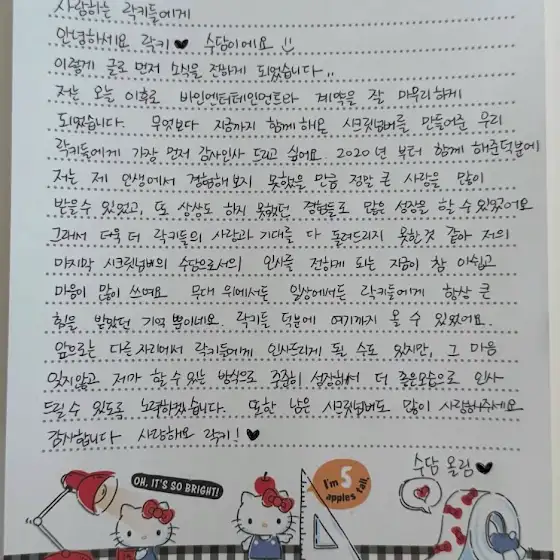 사랑하는 락키들에게
안녕하세요 락키 ♥ 수담이에요 :)
이렇게 글로 먼저 소식을 전하게 되었습니다..
저는 오늘 이후로 바인엔터테인먼트와 계약을 잘 마무리하게
되었습니다. 무엇보다 지금까지 함께 해온 시크릿넘버를 만들어준 우리
락키들에게 가장 먼저 감사인사 드리고 싶어요. 2020년 부터 함께 해준덕분에
저는 제 인생에서 경험해보지 못했을 만큼 정말 큰 사랑을 많이
받을수 있었고, 또 상상도 하지 못했던 경험들로 많은 성장을 할 수 있었어요
그래서 더욱 더 락키들의 사랑과 기대를 다 돌려드리지 못한것 같아 저의
마지막 시크릿넘버의 수담으로서의 인사를 전하게 되는 지금이 참 아쉽고
마음이 많이 쓰여요. 무대 위에서든 일상에서든 락키들에게 항상 큰
힘을 받았던 기억 뿐이네요. 락키들 덕분에 여기까지 올 수 있었어요.
앞으로는 다른자리에서 락키들에게 인사드리게 될 수도 있지만, 그 마음
잊지않고 제가 할 수 있는 방식으로 충분히 성장해서 더 좋은모습으로 인사
드릴 수 있도록 노력하겠습니다. 또한 남은 시크릿넘버도 많이 사랑해주세요
감사합니다 사랑해요 락키! ♥
수담 올림 ♥
OH, IT'S SO BRIGHT!
I'm 5 apples tall